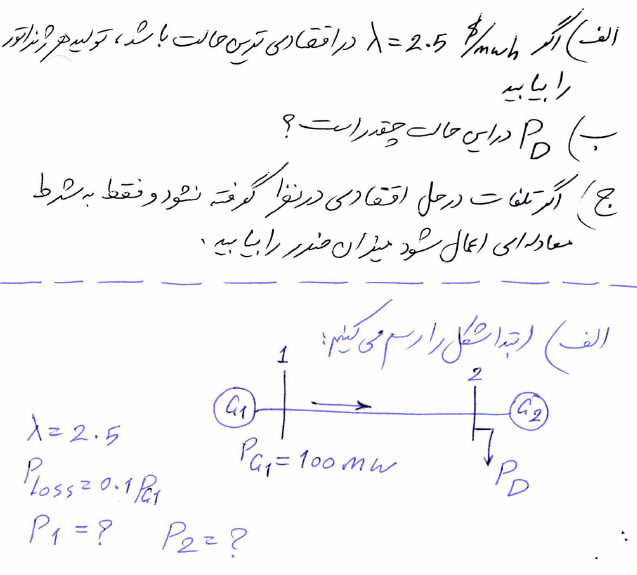 الف) اگر λ = 2.5 $/mwh در اقتصادی ترین حالت باشد، تولید هر ژنراتور
را بیابید
ب) P_D در این حالت چقدر است؟
ج) اگر تلفات در حل اقتصادی در نظر گرفته نشود و فقط به شرط
معادله‌ای اعمال شود میزان ضرر را بیابید.
الف) ابتدا شکل را رسم می کنیم:
1
2
G1
G2
P_G1 = 100 MW
P_D
λ = 2.5
P_Loss = 0.1 P_G1
P1 = ? P2 = ?